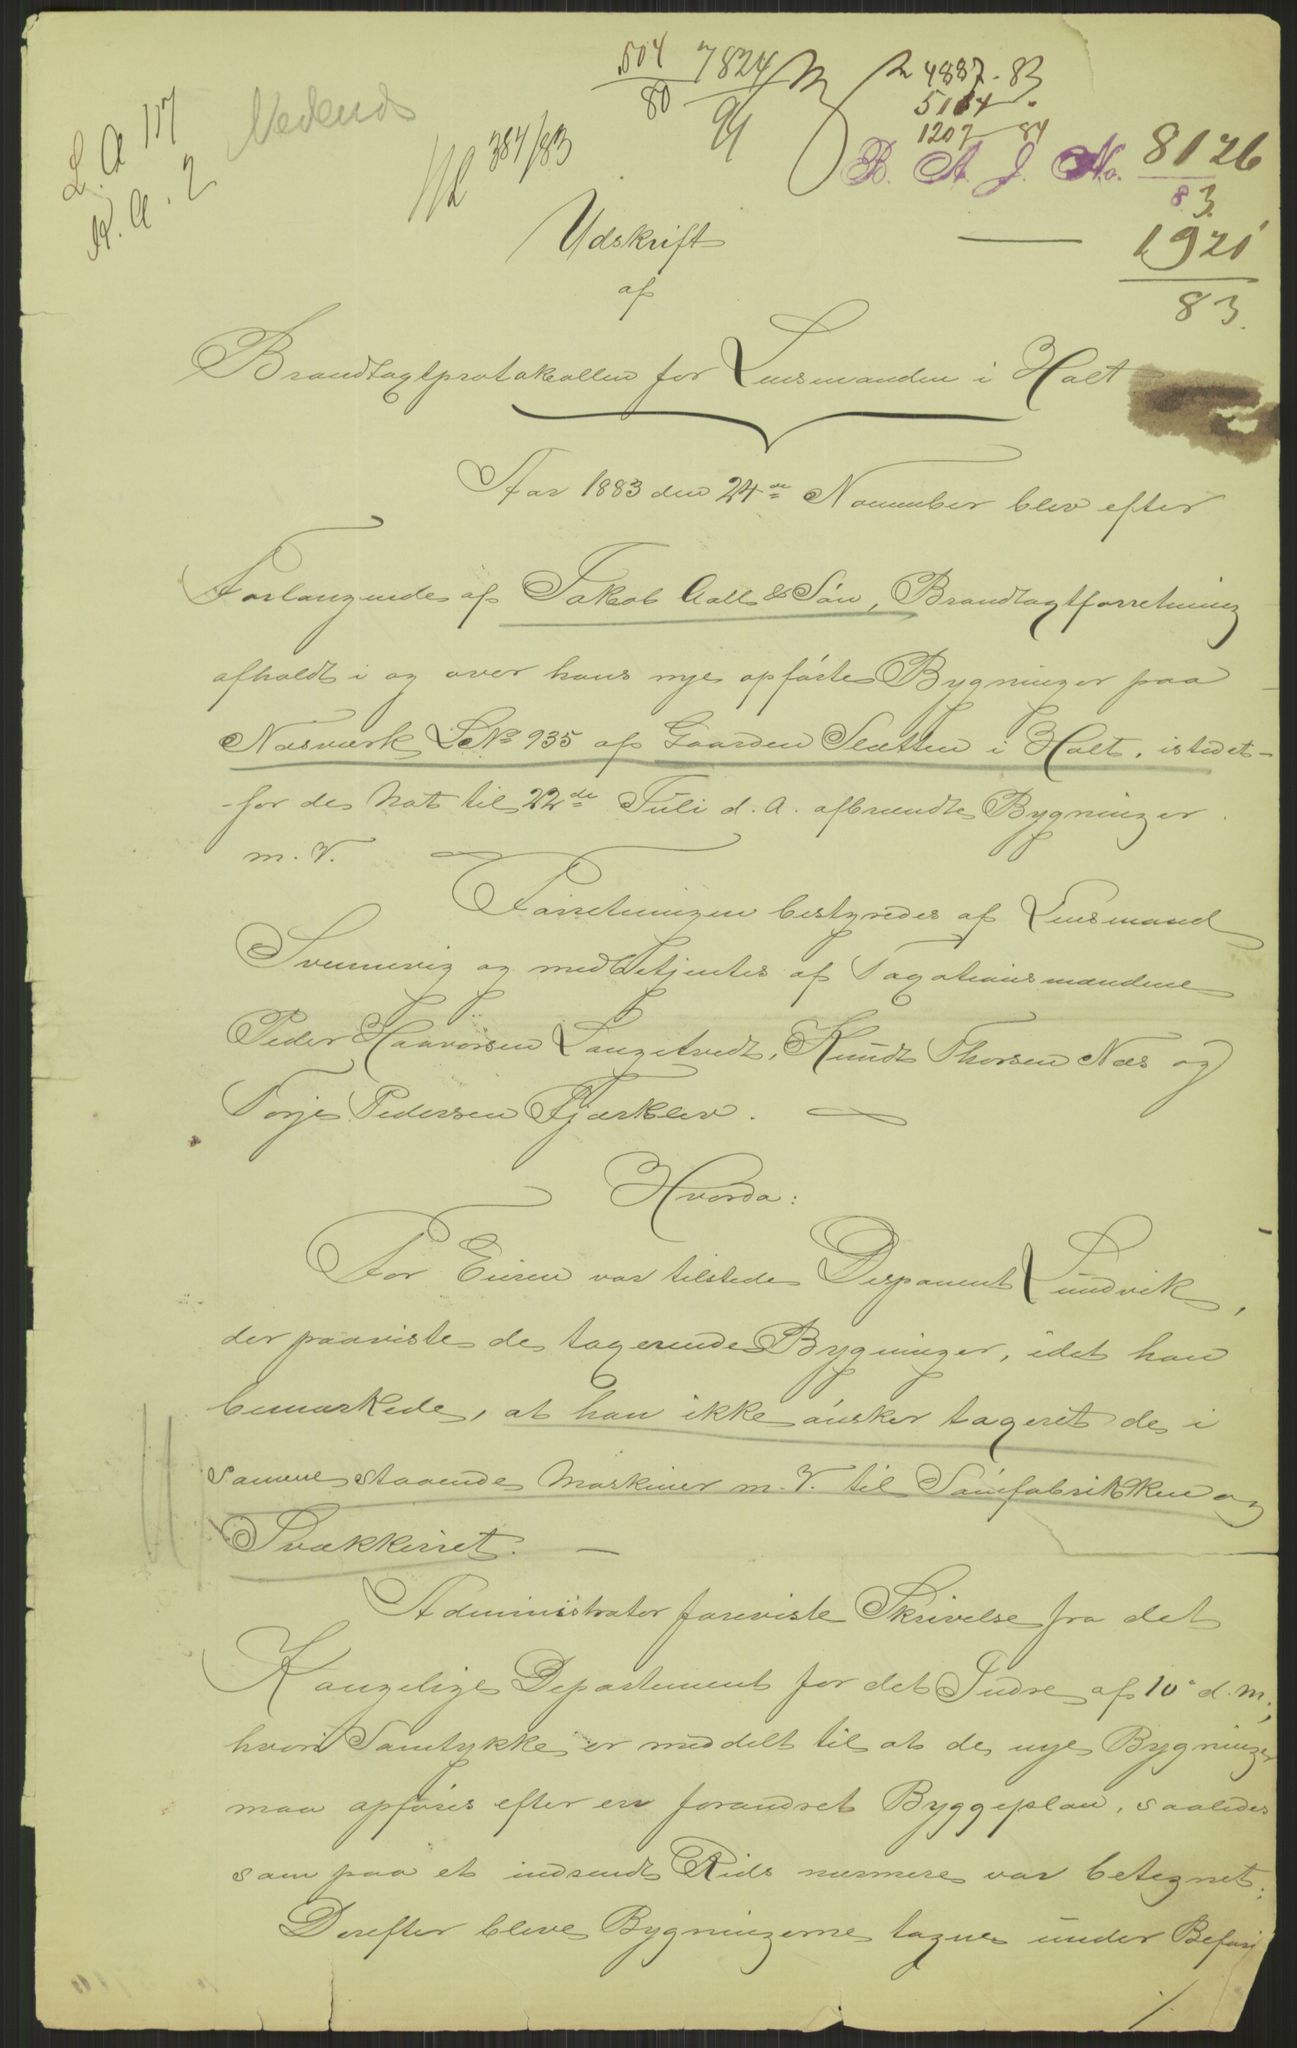 504/80 7824/91 4887-83
5164 -
1207-84
L. A 117
K. A. 2
Nedenæs
384/83
B. A. J. No. 8126/83
Udskrift
1921/83.
af
Brandtaxtprotokollen for Lensmanden i Holt
Aar 1883 den 24de November blev efter
Forlangende af Jakob Aall & Søn, Brandtaxtforretning
afholdt i og over hans nye opførte Bygninger paa
Næsværk L No 935 af Gaarden Sletten i Holt, istedet-
for de Nat til 22de Juli d. A. afbrændte Bygninger
m. V.
Forretningen bestyredes af Lensmand
Svennevig og medbetjentes af Taxationsmændene
Peder Haavorsen Langetvedt, Knudt Thorsen Næs og
Torje Pedersen Fjærklev.
Hvorda:
For Eieren var tilstede Disponent Lundvik,
der paaviste de taxerende Bygninger, idet han
bemærkede, at han ikke ønsker taxeret de i
samme staaende Maskiner m. V. til Sømfabrikken og
Trækkeriet. —
Administrator foreviste Skrivelse fra det
Kongelige Departement for det Indre af 10de d. M.,
hvori Samtykke er meddelt til at de nye Bygninger
maa opføres efter en forandret Byggeplan, saaledes
som paa et indsendt Rids nærmere var betegnet.
Derefter bleve Bygningerne tagne under Befari